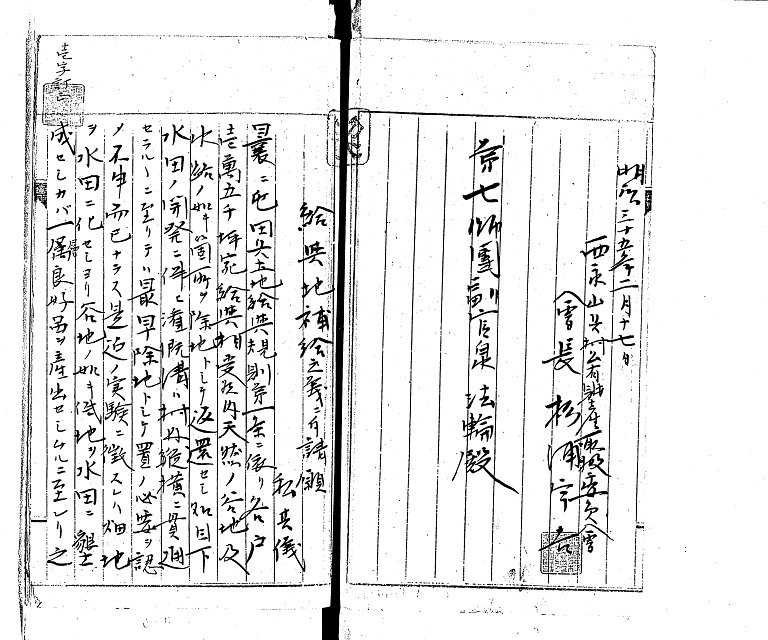 明治三十五年二月十七日
西永山兵村公有財産取扱委員会
会長 松浦宇吉
第七師團副官泉法輪殿
給與地補給之義ニ付請願
私共儀
曩ニ屯田兵土地給與規則第一条ニ依リ各戸
壱萬五千坪宛給與相受候内天然ノ谷地及
水給ノ如キ箇所ヲ除地トシテ返還セシ処目下
水田ノ開発ニ伴ヒ灌漑溝ハ村内縦横ニ貫通
セラルヽニ至リテハ最早除地トシテ置ノ必要ヲ認
メ不申而已ナラス是迄ノ実験ニ徴スレハ畑地
ヲ水田ニ化セシヨリ谷地ノ如キ低地ヲ水田ニ墾
成セシカバ一層良好米ヲ産出セシムルニ至レリ之
壱字訂正